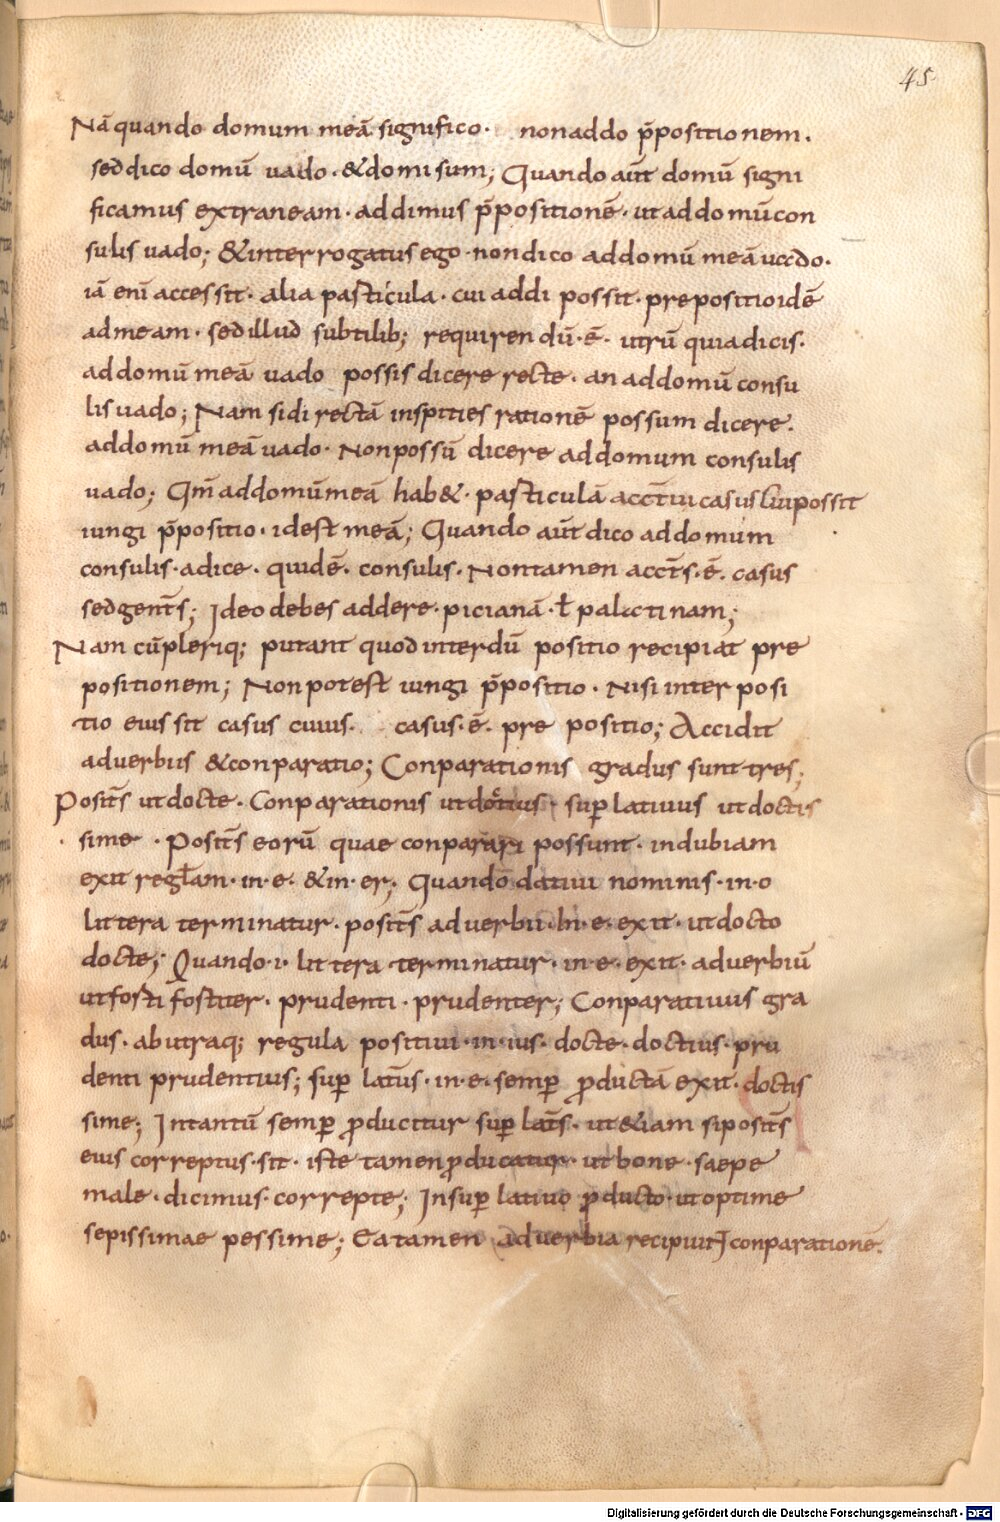 45
Nā quando domum meā significo· non addo p̄positionem.
sed dico domū uado·& domi sum; Quando aūt domū signi
ficamus extraneam· addimus p̄positionē· ut ad domū con
sulis uado; & interrogatus ego· non dico ad domū meā uado·
iā enī accessit· alia particula· cui addi possit· prepositio idē
ad meam· sed illud subtilib; requirendū·ē· utrū quia dicis·
ad domū meā uado possis dicere recte· an ad domū consu
lis uado; Nam si directā inspities rationē possum dicere·
ad domū meā uado· Non possū dicere ad domum consulis
uado; Qm̄ ad domū meā hab&· particulā acctīui casus cui possit
iungi p̄positio· id est meā; Quando aūt dico ad domum
consulis· adice· quidē· consulis· Non tamen acct̄s·ē· casus
sed gent̄s; Ideo debes addere· picianā· ł palactinam;
Nam cū pleriq; putant quod interdū positio recipiat pre
positionem; Non potest iungi p̄positio· Nisi inter posi
tio eius sit casus cuius· casus·ē· pre positio; Accidit
aduerbiis & conparatio; Conparationis gradus sunt tres;
Posit̄s ut docte· Conparationis ut doctius· sup̱latiuus ut doctis
sime· Posit̄s eorū quae conparari possunt· in dubiam
exit regłam· in·e· & in·er; Quando datiui nominis·in·o
littera terminatur· posit̄s aduerbii· in·e·exit· ut docto
docte; Quando·i· littera terminatur· in·e·exit· aduerbiū
ut forti fortiter· prudenti· prudenter; Conparatiuus gra
dus· ab utraq; regula positiui·in·ius· docte· doctius· pru
denti prudentius; sup̱ lat̄us·in·e· semp̱ ꝓductā exit· doctis
sime; In tantū semp̱ ꝓducitur sup̱ lat̄s· ut &iam si posit̄s
eius correptus·sit· iste tamen ꝓducatur· ut bone· saepe
male· dicimus· correpte; In sup̱latiuo ꝓducto· ut optime
sepissimae pessime; Ea tamen aduerbia recipiunt conparationē.
Digitalisierung gefördert durch die Deutsche Forschungsgemeinschaft - DFG